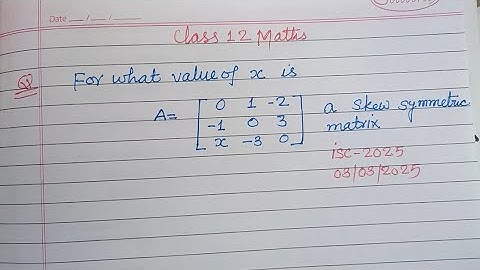 Date __/__/____
Class 12 Maths
Q
For what value of x is
A= [ 0 1 -2
-1 0 3
x -3 0 ] a skew symmetric
matrix
isc-2025
03/03/2025